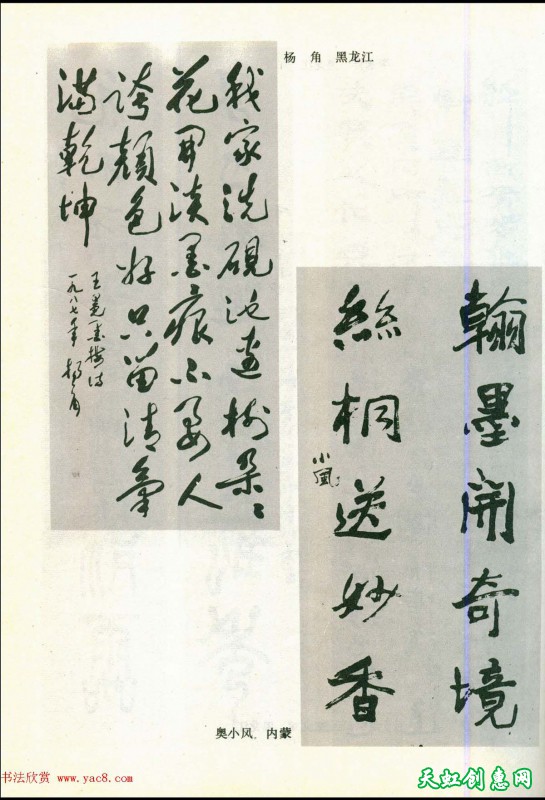 杨 角 黑龙江
我家洗硯池邊樹朵々
花開淡墨痕不要人
誇顏色好只留清氣
滿乾坤
王冕墨梅诗
一九八七年 楊角
翰墨開奇境
絲桐送妙香
小風
奥小风 内蒙
书法欣赏 www.yac8.com
天虹创意网